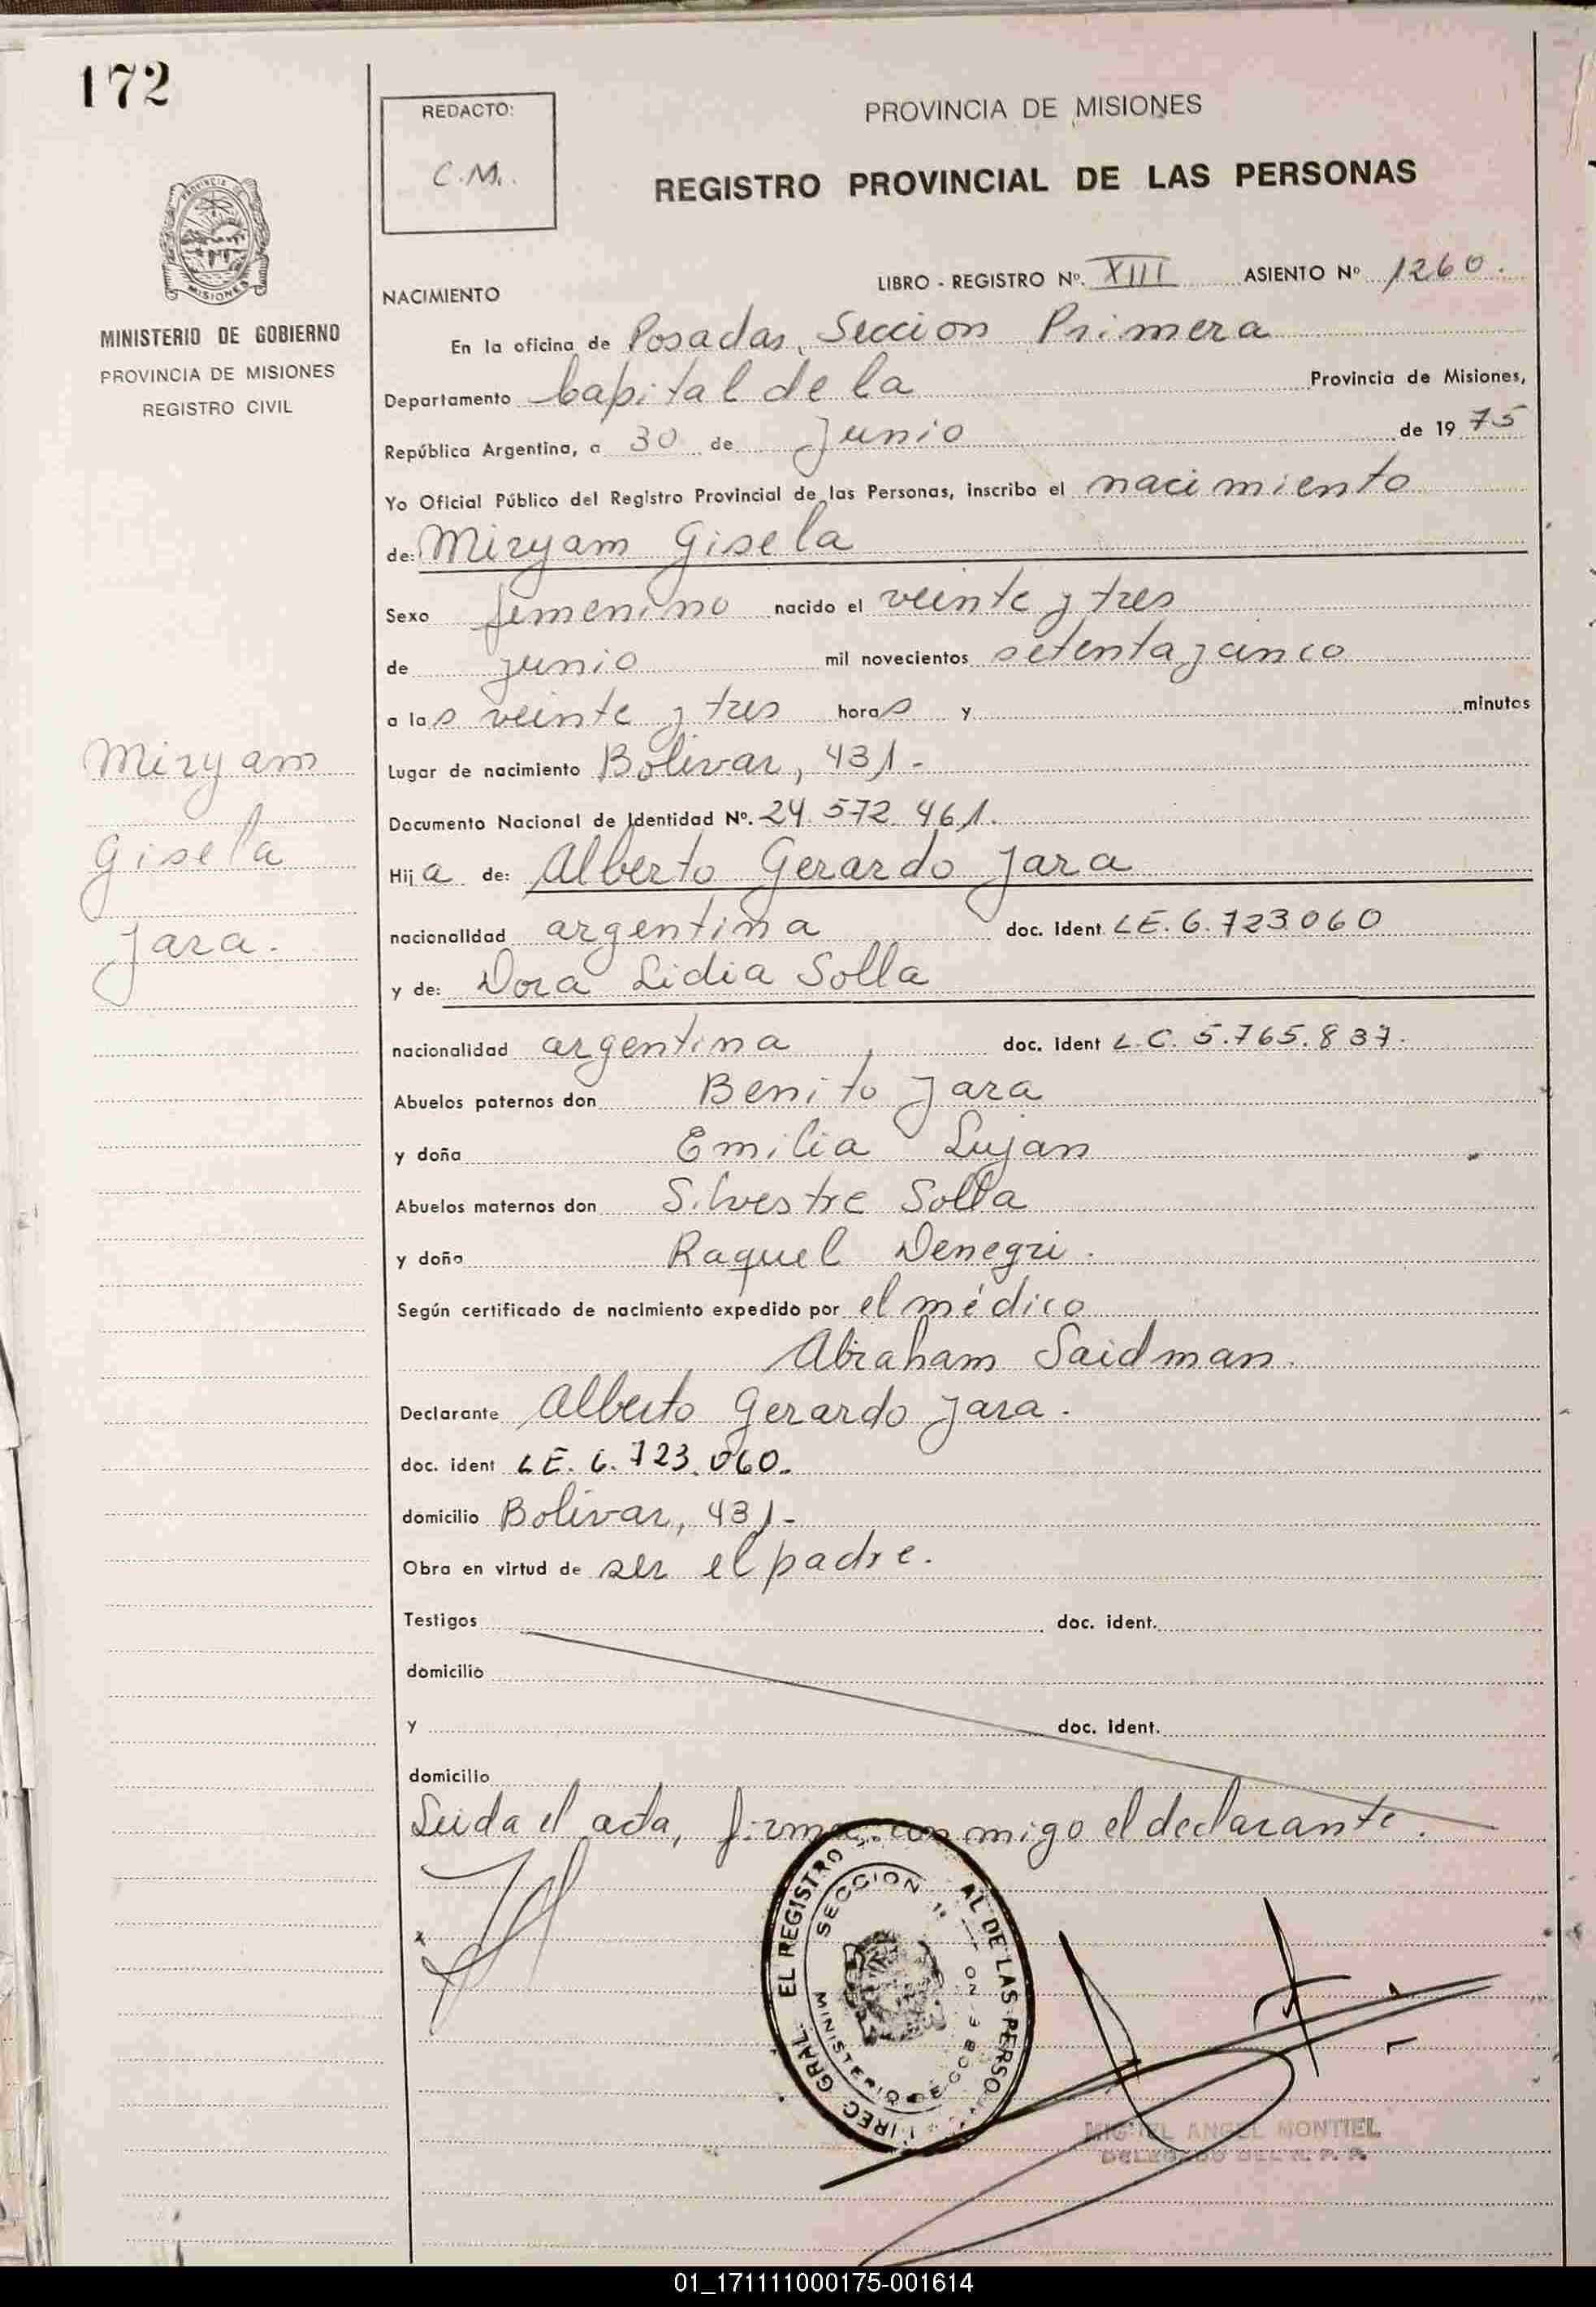 172
REDACTO:
C.M.
PROVINCIA DE MISIONES
REGISTRO PROVINCIAL DE LAS PERSONAS
MISIONES
MINISTERIO DE GOBIERNO
PROVINCIA DE MISIONES
REGISTRO CIVIL
LIBRO - REGISTRO Nº. XIII ASIENTO Nº 1260.
NACIMIENTO
En la oficina de Posadas, Seccion Primera
Departamento Capital de la Provincia de Misiones,
República Argentina, a 30 de Junio de 1975
Yo Oficial Público del Registro Provincial de las Personas, inscribo el nacimiento
de: Miryam Gisela
Sexo femenino nacido el veinte y tres
de junio mil novecientos setenta y cinco
a las veinte y tres horas y minutos
Lugar de nacimiento Bolivar, 431-
Documento Nacional de Identidad Nº. 24.572.461.
Hija de: Alberto Gerardo Jara
nacionalidad argentina doc. ident LE. 6.723.060
y de: Dora Lidia Solla
nacionalidad argentina doc. ident L.C. 5.765.837.
Abuelos paternos don Benito Jara
y doña Emilia Lujan
Abuelos maternos don Silvestre Solla
y doña Raquel Denegri.
Según certificado de nacimiento expedido por el médico
Abraham Saidman.
Declarante Alberto Gerardo Jara.
doc. ident LE. 6.723.060.
domicilio Bolivar, 431-
Obra en virtud de ser el padre.
Testigos doc. ident.
domicilio
y doc. ident.
domicilio
Leida el acta, firma conmigo el declarante.
Miryam
Gisela
Jara.
EL REGISTRO AL DE LAS PERSO
SECCION 1ª
MINISTERIO DE GOBIERNO
MIGUEL ANGEL MONTIEL
DELEGADO DEL R. P. P.
01_171111000175-001614